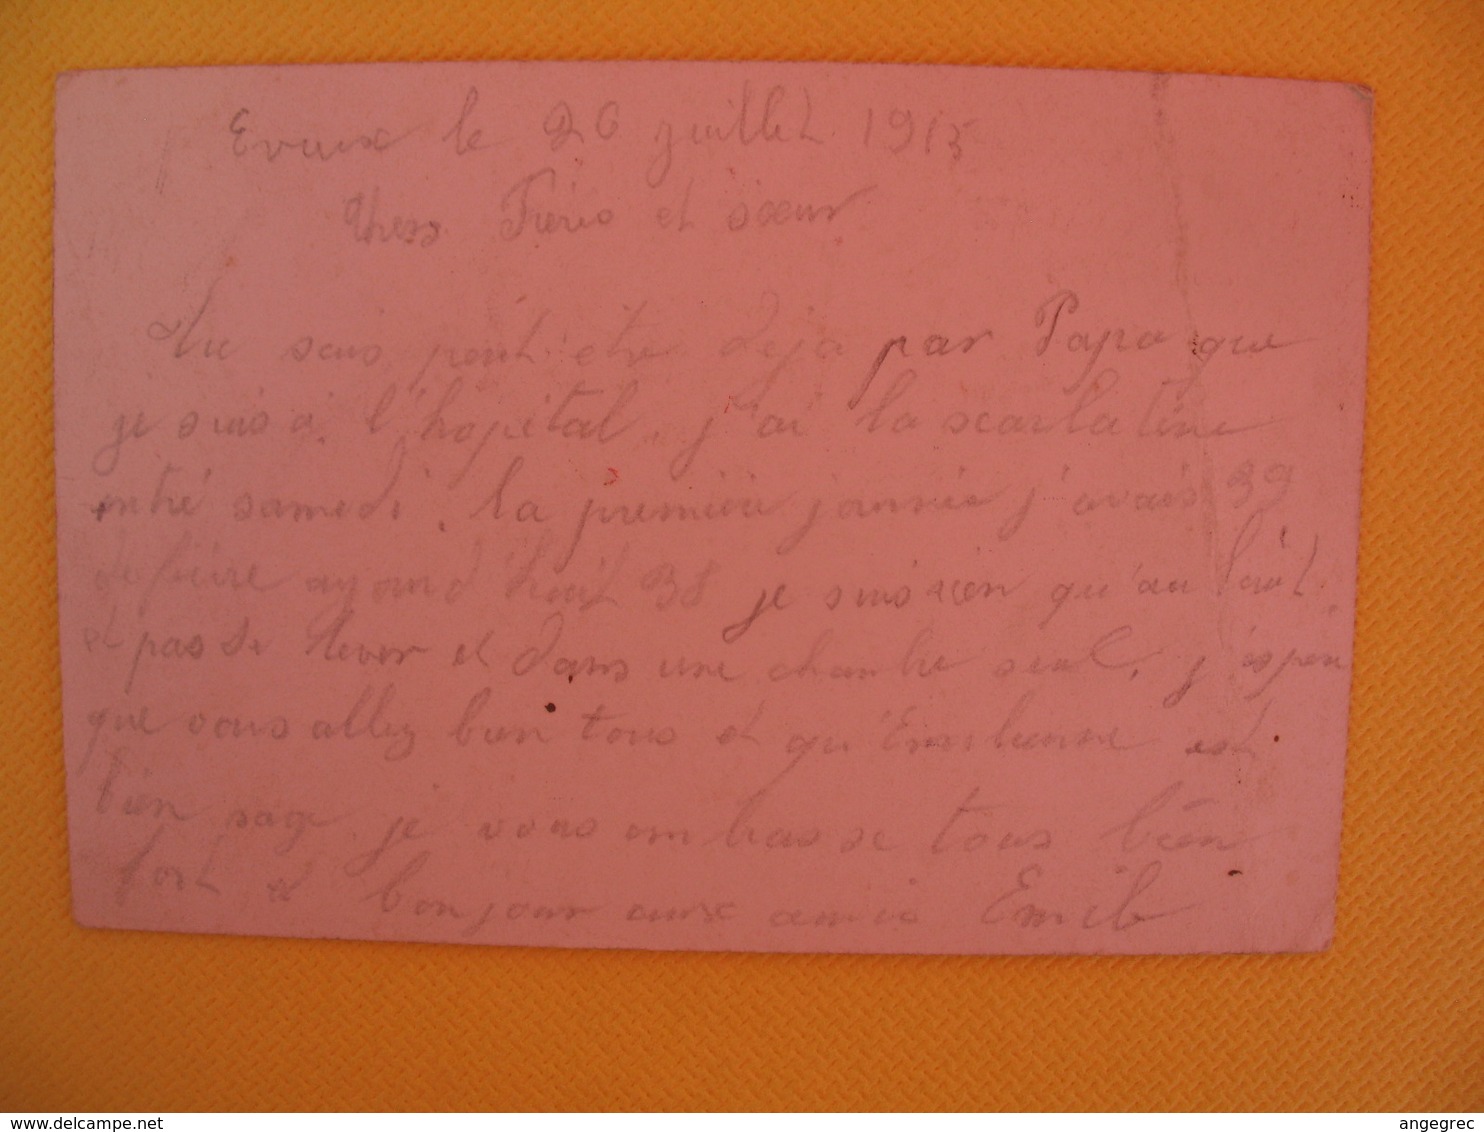 Evreux le 26 juillet 1915
Chers Frères et sœur
Tu sais peut être déjà par Papa que
je suis à l'hopital, j'ai la scarlatine
entré samedi, la première journée j'avais 39
de fièvre aujourd'huit 38 je suis rien qu'au lait
et pas se lever et dans une chambre seul, j'espère
que vous allez bien tous et qu'Emilienne est
bien sage, je vous ombrasse tous bien
fort et bonjour aux amis Emile
www.delcampe.net
angegrec